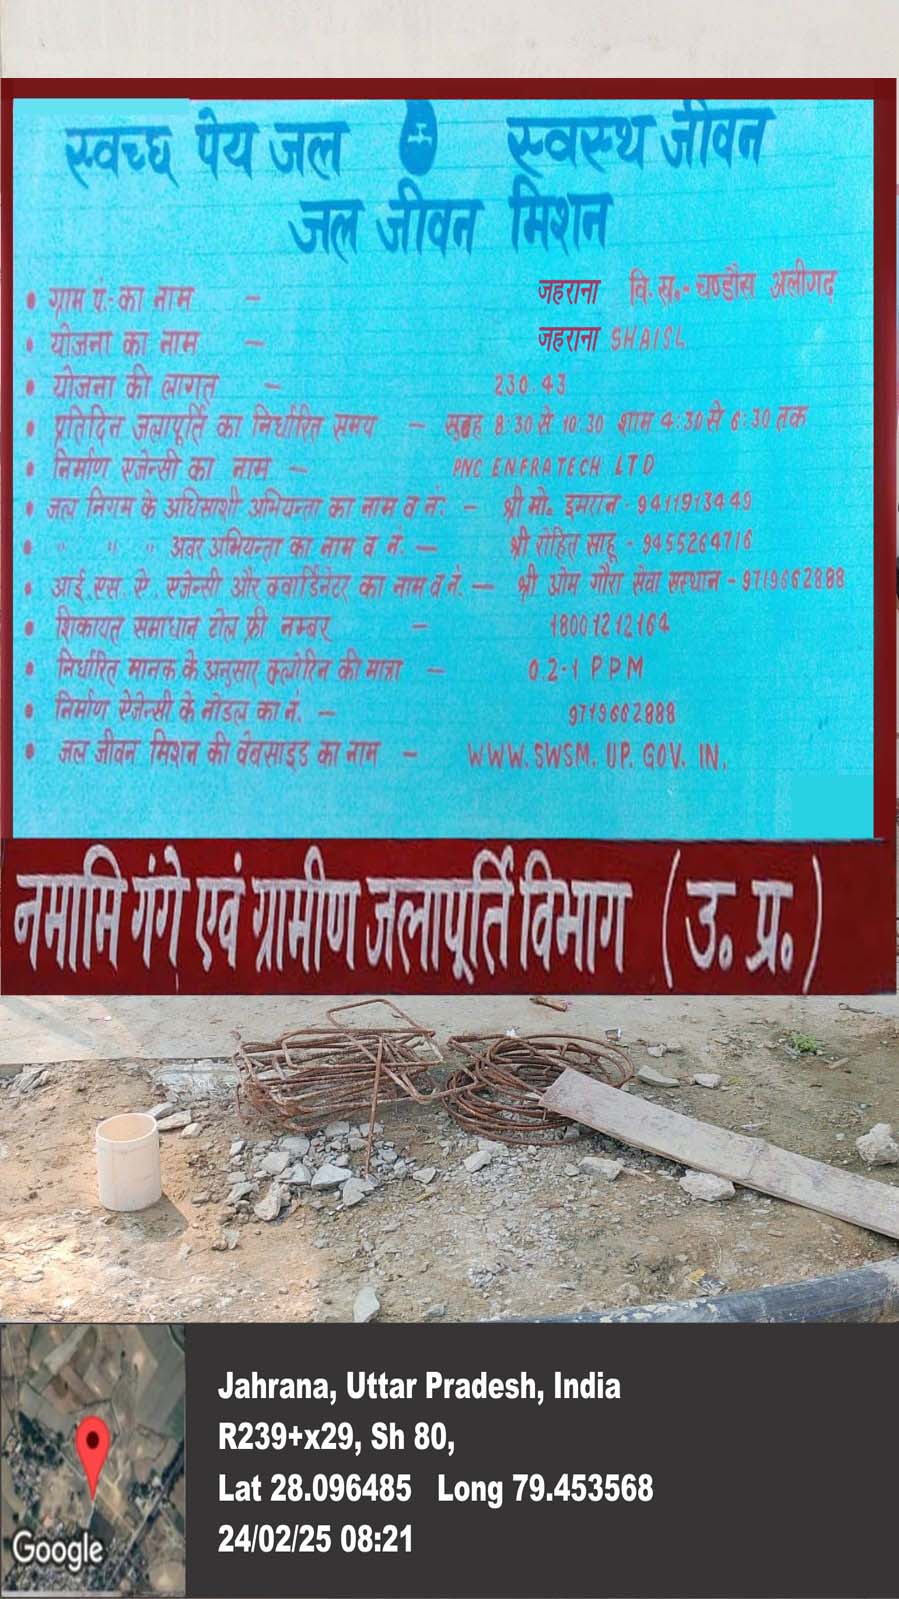 स्वच्छ पेय जल स्वस्थ जीवन
जल जीवन मिशन
• ग्राम पं.-का नाम - जहराना वि.ख.- चण्डौस अलीगढ़
• योजना का नाम - जहराना SHAISL
• योजना की लागत - 230.43
• प्रतिदिन जलापूर्ति का निर्धारित समय - सुबह 8:30 से 10:30 शाम 4:30 से 6:30 तक
• निर्माण एजेन्सी का नाम - PNC ENFRATECH LTD
• जल निगम के अधिसाशी अभियन्ता का नाम व नं: - श्री मो. इमरान - 9411913449
• " " " अवर अभियन्ता का नाम व नं: - श्री रोहित साहू - 9455264716
• आई.एस.ऐ. एजेन्सी और क्वार्डिनेटर का नाम व नं. - श्री ओम गौरा सेवा सस्थान - 9719662888
• शिकायत समाधान टोल फ्री नम्बर - 18001212164
• निर्धारित मानक के अनुसार क्लोरिन की मात्रा - 0.2-1 PPM
• निर्माण ऐजेन्सी के नोडल का नं. - 9719662888
• जल जीवन मिशन की वेबसाइड का नाम - WWW.SWSM.UP.GOV.IN.
नमामि गंगे एवं ग्रामीण जलापूर्ति विभाग (उ.प्र.)
Jahrana, Uttar Pradesh, India
R239+x29, Sh 80,
Lat 28.096485 Long 79.453568
24/02/25 08:21
Google